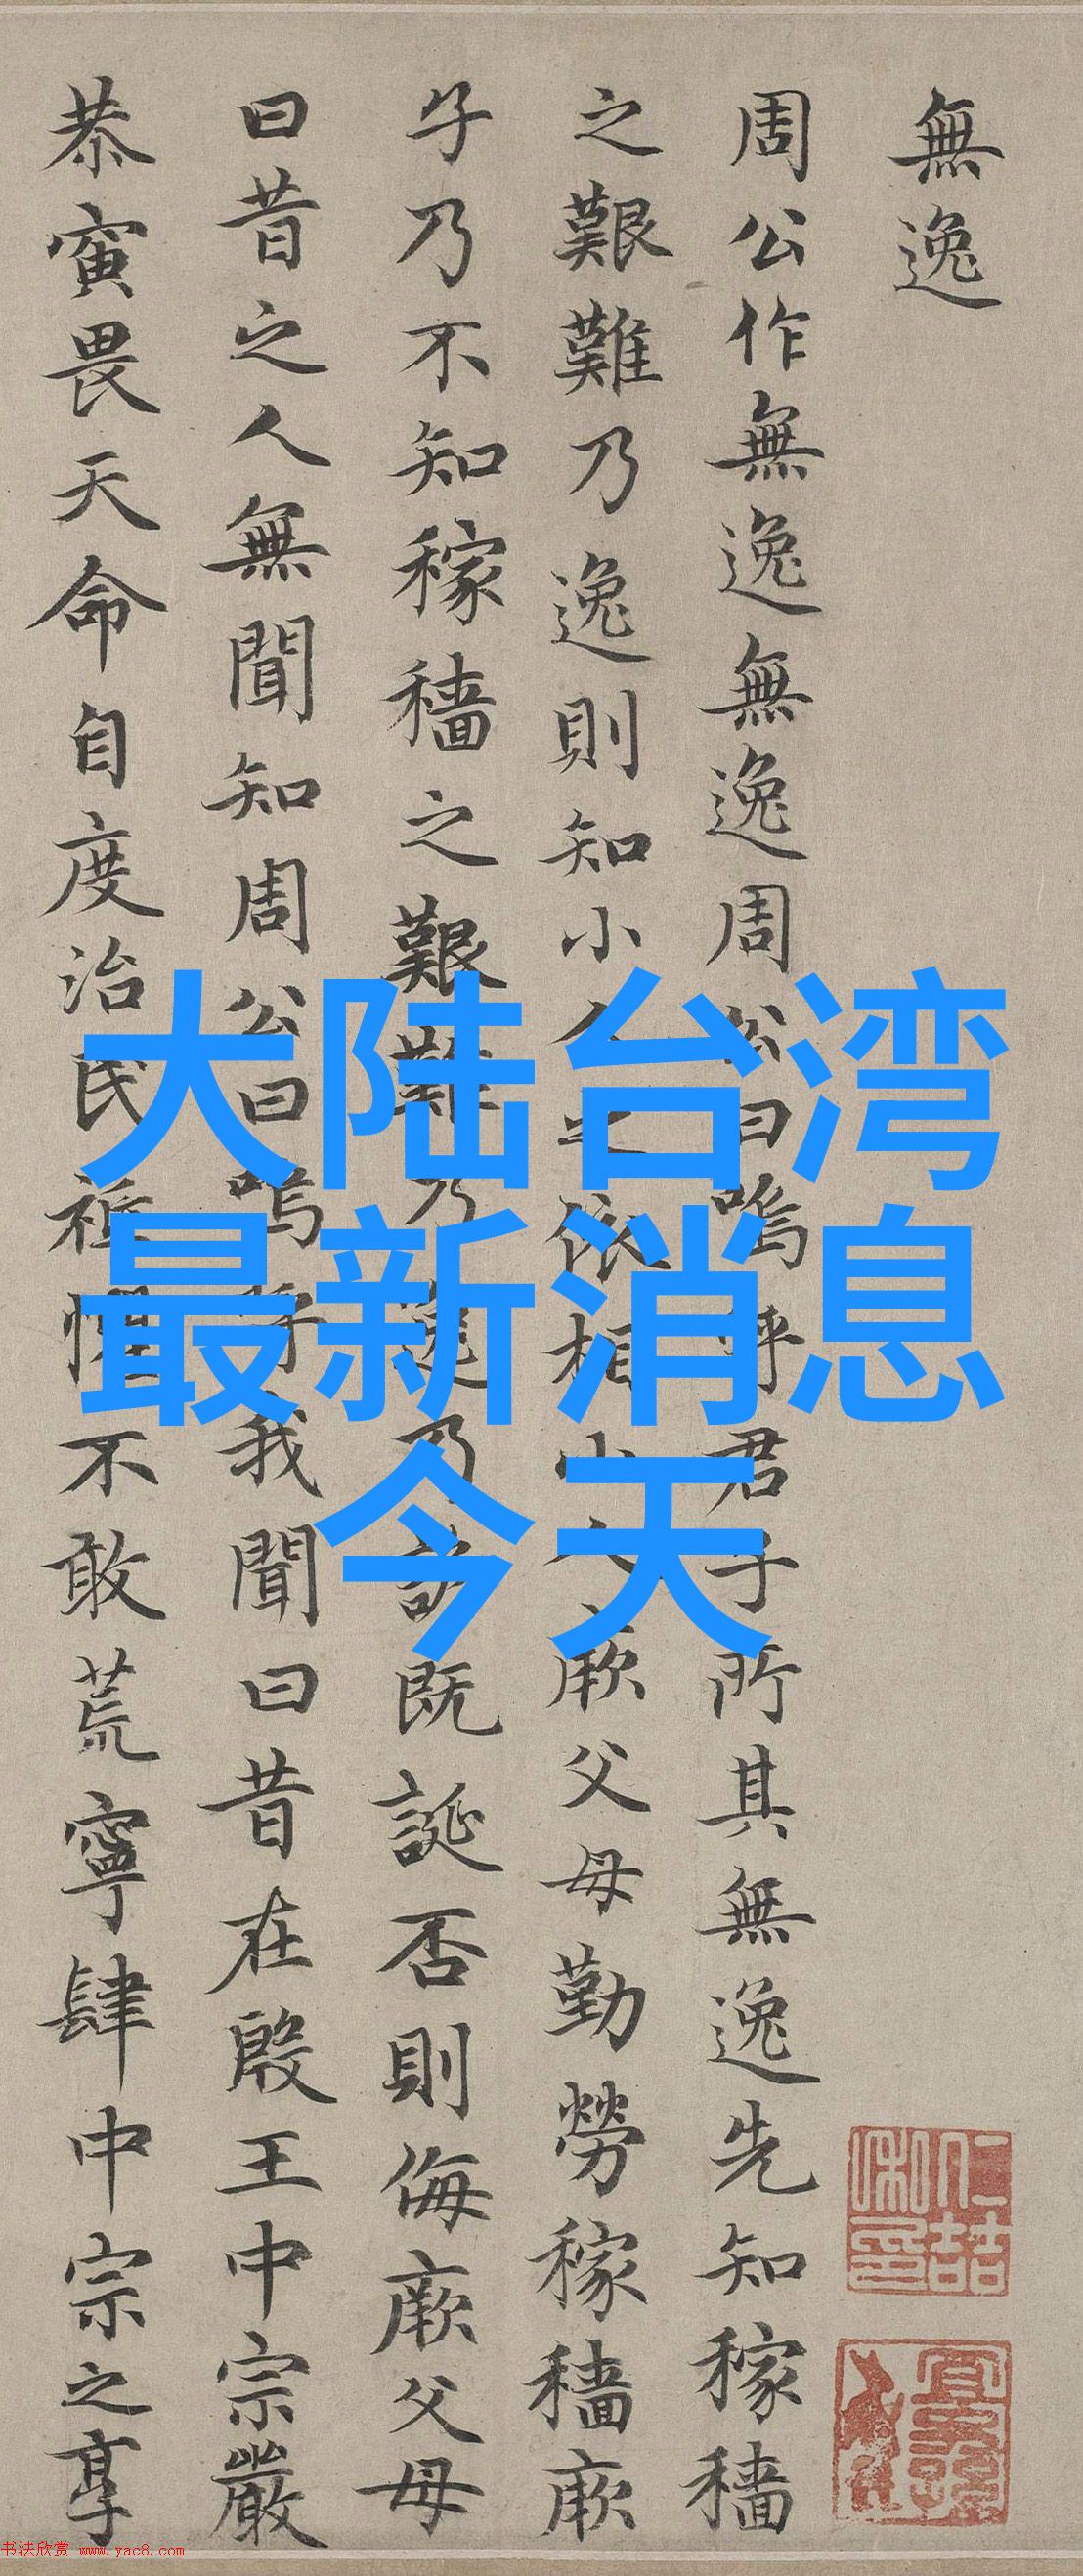 無逸
周公作無逸無逸周公曰嗚呼君子所其無逸先知稼穡
之艱難乃逸則知小人之依相小人厥父母勤勞稼穡厥
子乃不知稼穡之艱難乃逸乃諺既誕否則侮厥父母
曰昔之人無聞知周公曰嗚呼我聞曰昔在殷王中宗嚴
恭寅畏天命自度治民祗懼不敢荒寧肆中宗之享
大陆台湾
最新消息
今天
书法欣赏 www.yac8.com